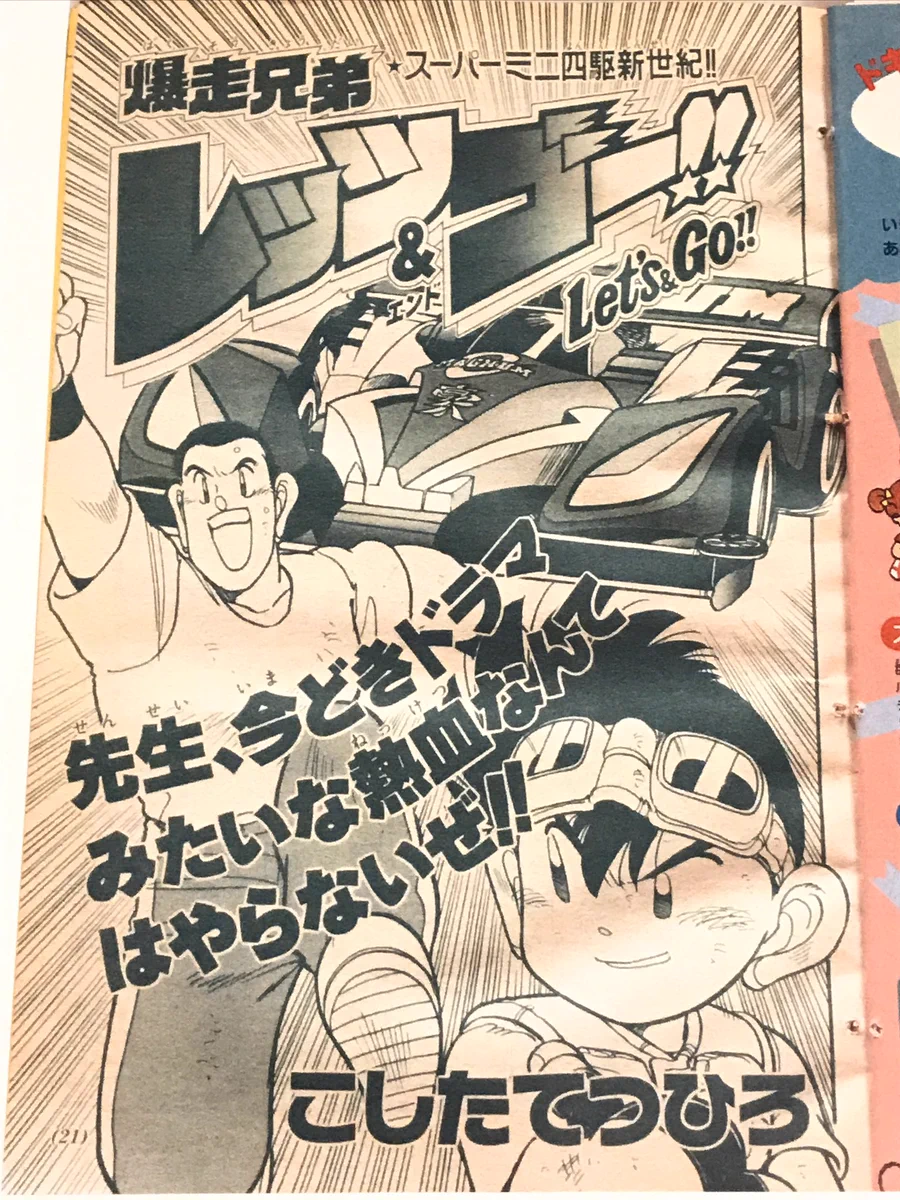 爆走兄弟
★スーパーミニ四駆新世紀!!
レッツ
&
エンド
ゴー!!
Let's&Go!!
MAGNUM
先生、今どきドラマ
せんせい いま
みたいな熱血なんて
ねっけつ
はやらないぜ!!
こしたてつひろ
(21)